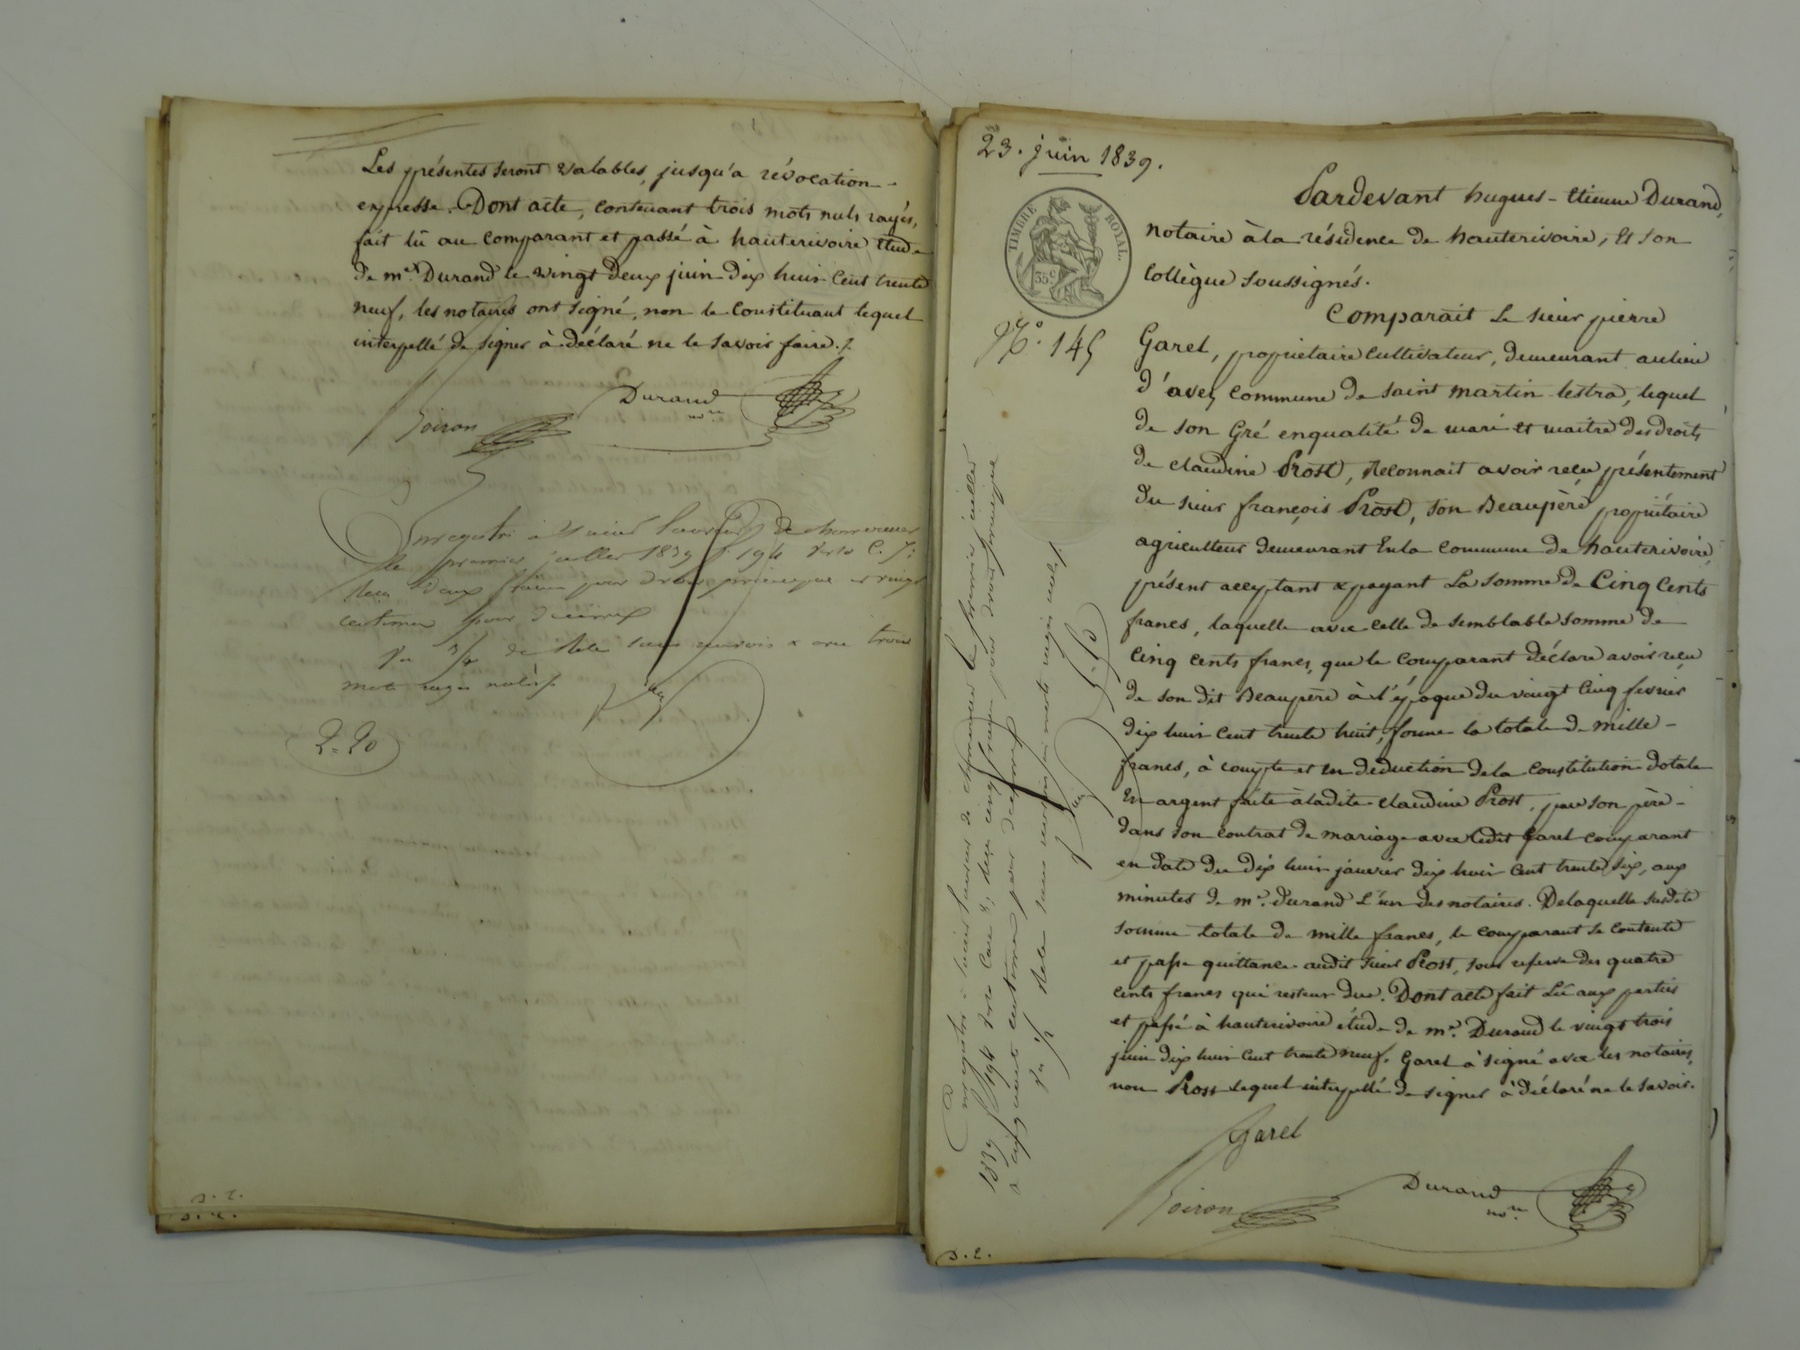 Les présentes seront valables, jusqu'a révocation -
expresse. Dont acte, contenant trois mots nuls rayés,
fait lû au comparant et passé à hauterivoire étude
de me. Durand le vingt deux juin dix huit cent trente
neuf, les notaires ont signé, non le constituant lequel
interpellé de signer à déclaré ne le savoir faire ./.
Durand
nore
Coiron
Enregistré à
le premier juillet 1839 fo 194 verso C. 7:
Reçu deux francs pour droit principal et vingt
centimes pour decime
mots rayés nuls ./.
2=20
D. E.
23. juin 1839.
TIMBRE ROYAL.
35 c
No. 145
Pardevant hugues-Etienne Durand,
notaire à la résidence de hauterivoire, Et son
Collègue soussignés.
Comparait Le sieur pierre
Garel, propriétaire cultivateur, demeurant au lieu
d'avez commune de saint martin lestra, lequel
de son Gré en qualité de mari et maitre des droits
de claudine Prost, Reconnait avoir reçu présentement
du sieur françois Prost, son Beaupère, propriétaire
agriculteur demeurant En la commune de hauterivoire,
présent acceptant & payant La somme de Cinq Cents
francs, laquelle avec celle de semblable somme de
cinq cents francs, que le comparant déclare avoir reçu
de son dit Beaupère à l'époque du vingt cinq fevrier
dix huit cent trente huit, forme la totale de mille -
francs, à compte et en deduction de la constitution dotale
En argent faite à ladite claudine Prost, par son père -
dans son contrat de mariage avec ledit Garel comparant
en date du dix huit janvier dix huit cent trente six, aux
minutes de me. durand L'un des notaires. De laquelle susdite
somme totale de mille francs, le comparant se contente
et passe quittance audit sieur Prost, sous reserve des quatre
cents francs qui restent dus. Dont acte fait Lû aux parties
et passé à hauterivoire étude de me. Durand le vingt trois
juin dix huit cent trente neuf. Garel à signé avec les notaires,
non Prost lequel interpellé de signer à déclaré ne le savoir.
Garel
Coiron
Durand
nore
Enregistré à le premier juillet
1839 fo 194 verso Case 8; Reçu cinq francs pour droit principal
& cinquante centimes pour decime
5.50
D. E.